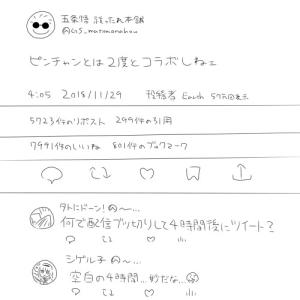 五条悟 腹ったれ本舗
@GS_matomonahou
ピンチャンとは2度とコラボしねェ
4:05 2018/11/29 投稿者 Earth 57万回表示
5723件のリポスト 299件の引用
7991件のいいね 801件のブックマーク
タトにドーン!@〜…
何で配信ブッ切りして4時間後にツイート?
シゲル子 @〜…
空白の4時間…妙だな…